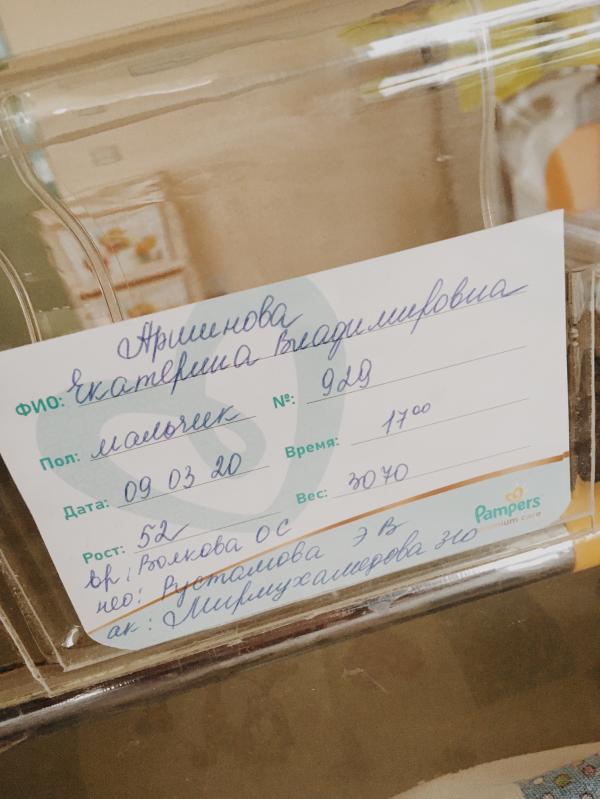 Аршинова
ФИО: Екатерина Владимировна
Пол: мальчик №: 929
Дата: 09 03 20 Время: 17 00
Рост: 52 Вес: 3070
вр: Волкова О С
нео: Рустамова Э В
ак: Мирмухамедова Э Ю
Pampers
premium care